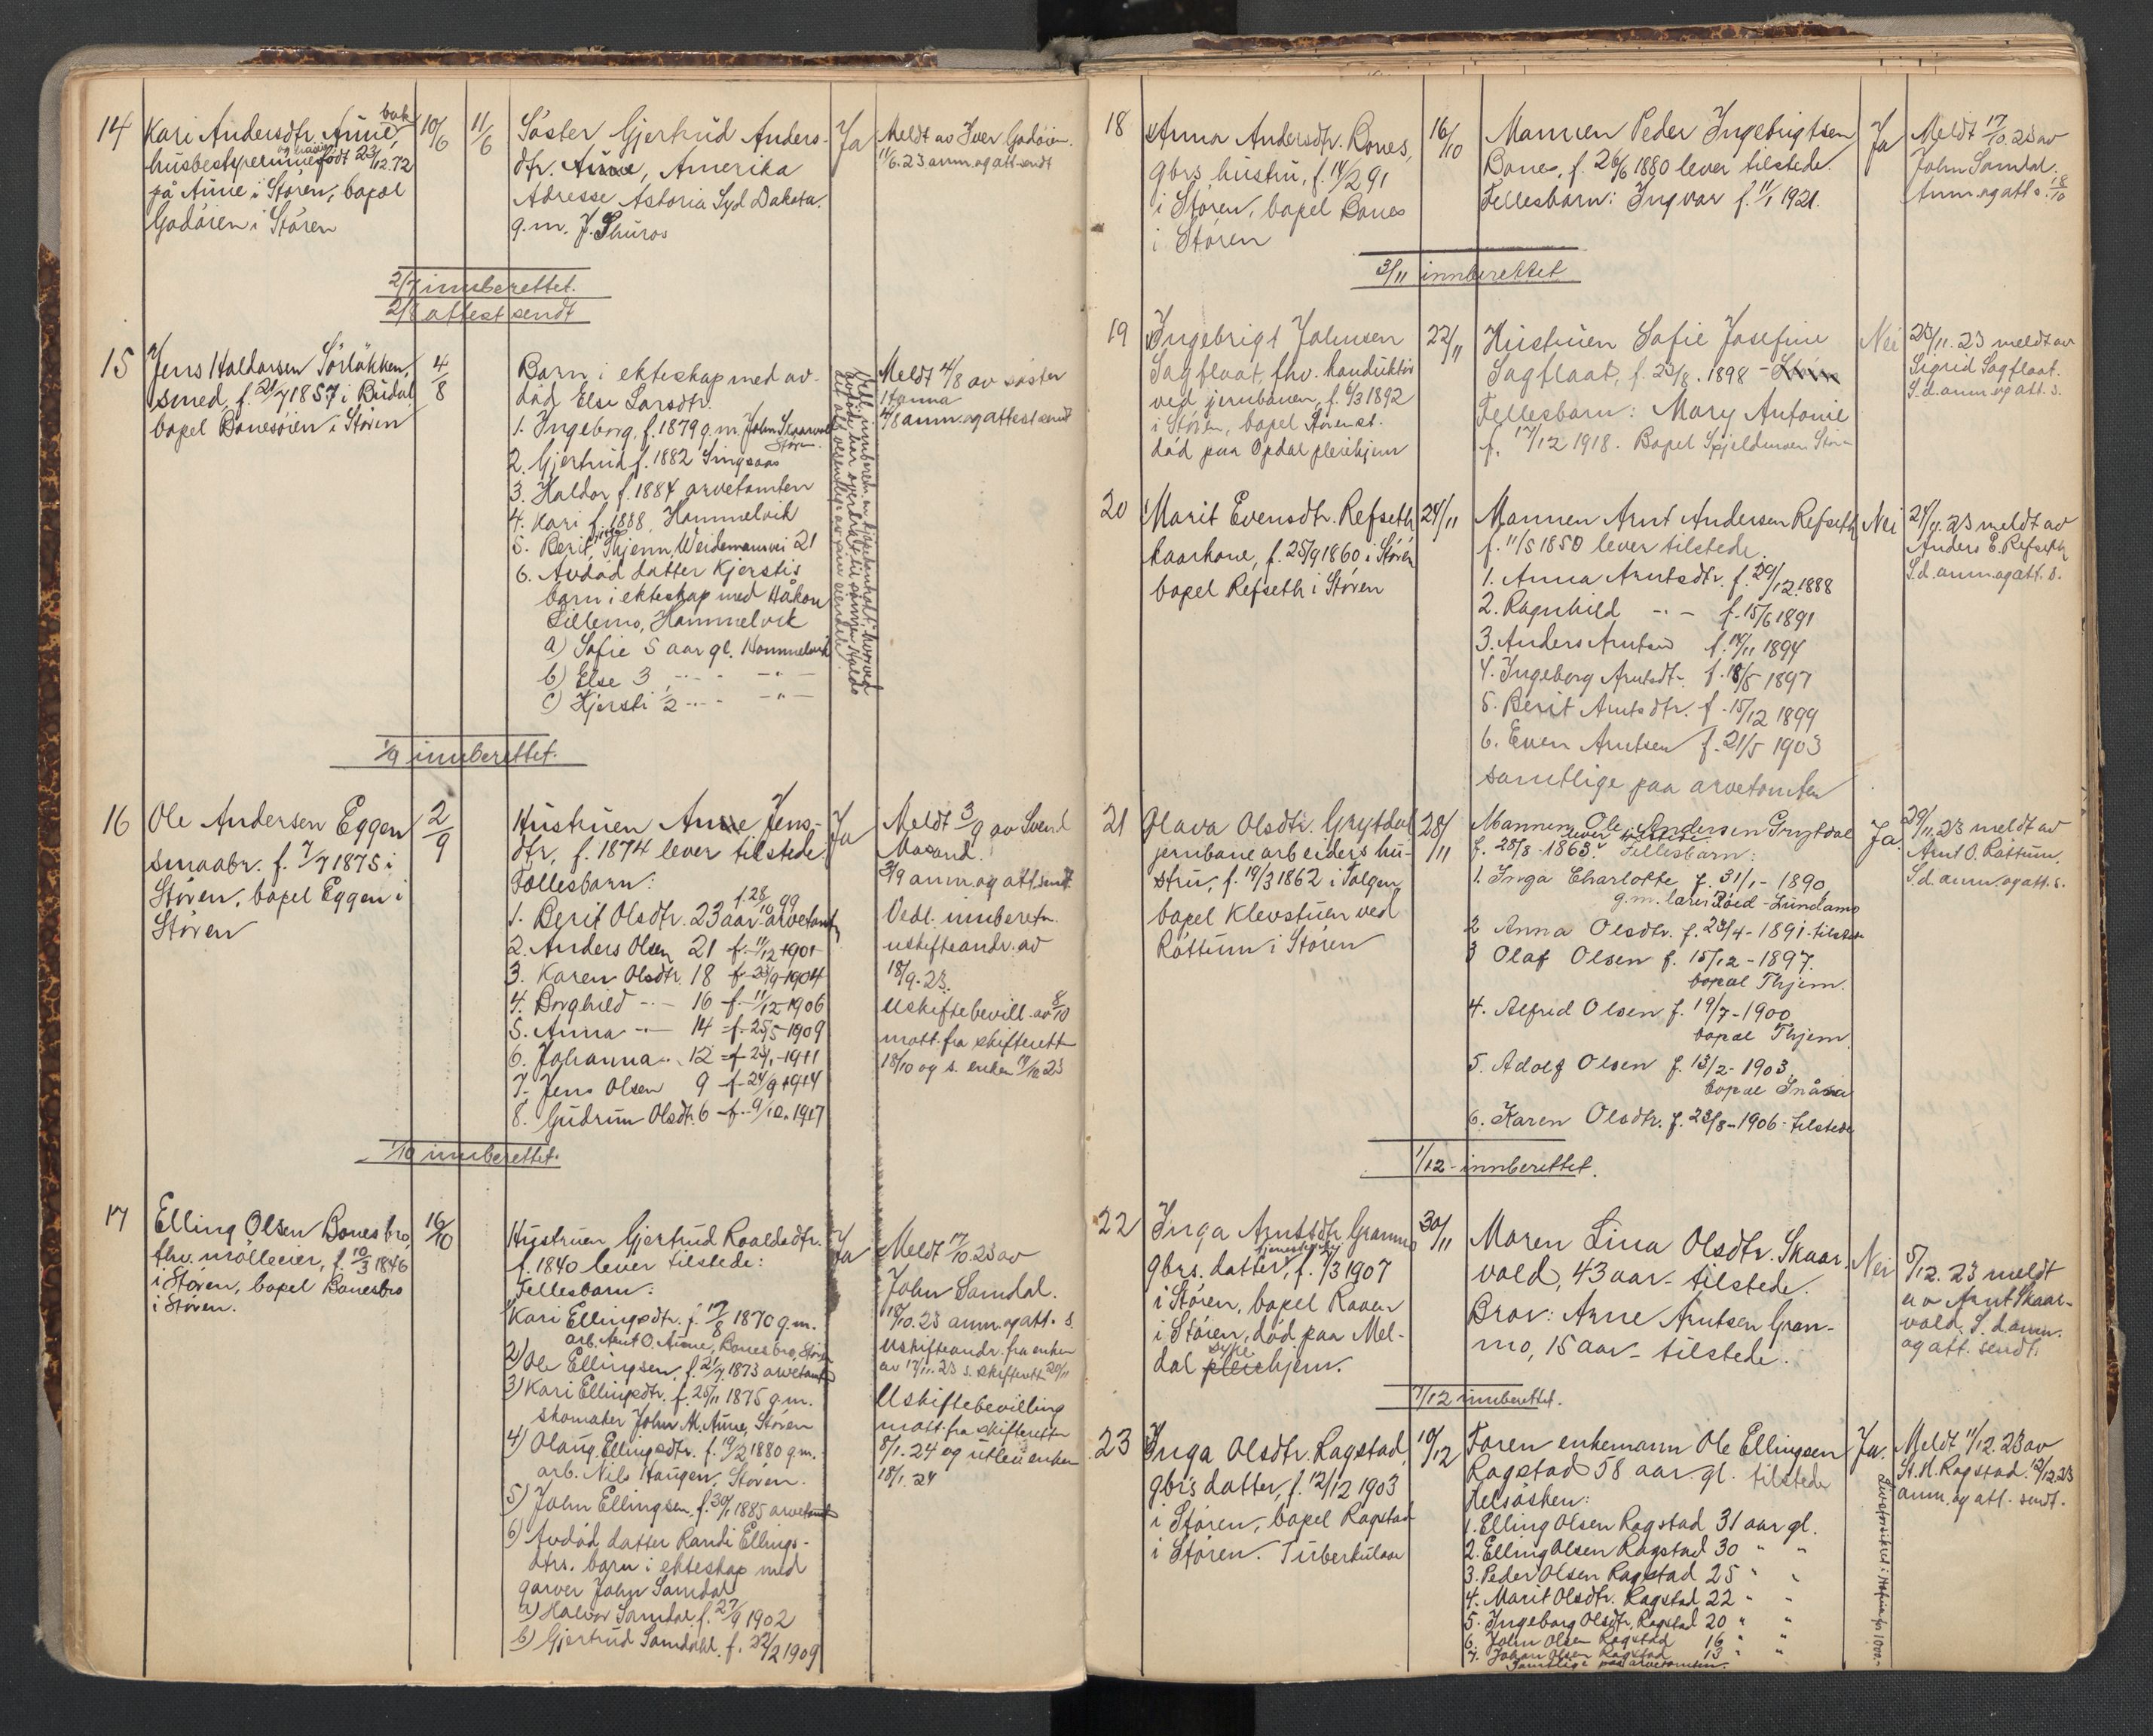 14
Kari Andersdtr. Aune, bak
husbestyrerinne født 23/12.72
på Aune i Støren, bopæl
Godøien i Støren
10/6
11/6
Søster Gjertrud Anders-
dtr. Aune, Amerika
Adresse Astoria Syd Dakota.
g.m. J. Thuros
Ja
Meldt av Iver Godøien.
11/6.23 anm. og att. sendt
2/7 innberettet.
2/8 attest sendt
15
Jens Haldorsen Sørløkken,
smed, f. 21/7 1857 i Budal
bopel Bonesøien i Støren
4/8
Barn i ekteskap med av-
død Else Larsdtr.
1. Ingeborg, f. 1879 g.m. John Skaarvold
Støren.
2. Gjertrud f. 1882 Singsaas
3. Haldor f. 1884 arvetomten
4. Kari f. 1888, Hommelvik
5. Berit, Thjem, Weidemannsvei 21
6. Avdød datter Kjerstis
barn i ekteskap med Håkon
Lillemo, Hommelvik
a) Sofie 5 aar gl. Hommelvik
b) Else 3 -"- -"-
c) Kjersti 1/2 -"- -"-
Meldt 4/8 av søster
Hanna
4/8 anm. og attest sendt
1/9 innberettet.
16
Ole Andersen Eggen
smaabr. f. 7/7 1875 i
Støren, bopel Eggen i
Støren
2/9
Hustruen Anne Jens-
dtr, f. 1874 lever tilstede.
Fællesbarn:
f. 28/10 99
1. Berit Olsdtr. 23 aar arvetomt
2. Anders Olsen 21 f. 11/12 1901
3. Karen Olsdtr. 18 f. 23/9 1904
4. Borghild -"- 16 f. 11/12 1906
5. Anna -"- 14 f. 25/5 1909
6. Johanna -"- 12 f. 23/1 1911
7. Jens Olsen 9 f. 24/9 1914
8. Gudrun Olsdtr. 6 f. 9/10. 1917
Ja
Meldt 3/9 av Svend
Moxand.
3/9 anm. og att. sendt.
Vedl. innberetn.
uskifteandr. av
18/9.23.
Uskiftebevill. av 8/10
mott. fra skifterett
18/10 og s. enken 19/10 23
1/10 innberettet.
17
Elling Olsen Bonesbro,
fhv. møllerier, f. 10/3 1846
i Støren, bopel Bonesbro
i Støren.
16/10
Hustruen Gjertrud Roaldsdtr.
f. 1840 lever tilstede:
Fellesbarn:
Kari Ellingsdtr. f. 17/8 1870 g.m.
arb. Arnt O. Aune, Bonesbro, Støren
2) Ole Ellingsen, f. 21/7 1873 arvetomt
3) Kari Ellingsdtr. f. 25/11 1875 g.m.
skomaker John M. Aune, Støren
4) Olaug Ellingsdtr. f. 19/2 1880 g.m.
arb. Nils Haugen, Støren.
5) John Ellingsen, f. 30/1 1885 arvetomt
6) Avdød datter Randi Ellings-
dtrs. barn i ekteskap med
garver John Samdal
a) Halvor Samdal f. 27/9 1902
b) Gjertrud Samdahl f. 22/2 1909
Ja
Meldt 17/10.23 av
John Samdal.
18/10.23 anm. og att. s.
Uskifteandr. fra enken
av 17/11.23 s. skifterett 20/11
Uskiftebevilling
mott. fra skifteretten
8/1.24 og utlev. enken
18/1.24
18
Anna Andersdtr. Bones,
gbrs. hustru, f. 14/2 91
i Støren, bopel Bones
i Støren
16/10
Mannen Peder Ingebrigtsen
Bones, f. 26/6 1880 lever tilstede.
Fellesbarn: Ingvar f. 11/1 1921.
Ja
Meldt 17/10.23 av
John Samdal.
Anm. og att. s. 18/10
3/11 innberettet
19
Ingebrigt Johnsen
Sagflaat, fhv. konduktør
ved jernbanen, f. 6/3 1892
i Støren, bopel Støren st.
død paa Opdal pleiehjem
22/11
Hustruen Sofie Josefine
Sagflaat, f. 23/8. 1898 -
Fellesbarn: Mary Antonie
f. 17/12 1918. Bopel Spjeldmoen Støren
Nei
23/11.23 meldt av
Sigrid Sagflaat.
S.d. anm. og att. s.
20
Marit Evensdtr. Refseth
kaarkone, f. 25/9 1860 i Støren
bopel Refseth i Støren
24/11
Mannen Arnt Andersen Refseth
f. 11/5 1850 lever tilstede.
1. Anna Arntsdtr. f. 29/12 1888
2. Ragnhild -"- f. 15/6 1891
3. Anders Arntsen f. 14/11 1894
4. Ingeborg Arntsdtr. f. 18/5 1897
5. Berit Arntsdtr. f. 15/12 1899
6. Even Arntsen f. 21/5 1903
samtlige paa arvetomten
Nei
24/11.23 meldt av
Anders E. Refseth
S.d. anm. og att. s.
21
Olava Olsdtr. Grytdal
jernbanearbeiders hu-
stru, f. 19/3 1862 i Tolgen
bopel Klevstuen ved
Røttum i Støren
28/11
Mannen Ole Andersen Grytdal
lever tilstede
f. 28/8-1863. Fellesbarn:
1. Inga Charlotte f. 31/1-1890
g.m. lærer Røed - Lundamo
2 Anna Olsdtr. f. 23/4-1891-tilstede
3 Olaf Olsen f. 15/12-1897.
bopæl Thjem.
4. Alfred Olsen f. 19/7-1900
bopæl Thjem.
5. Adolf Olsen f. 13/2-1903
bopæl Snåsa
6. Karen Olsdtr. f. 23/8-1906-tilstede
Ja.
29/11.23 meldt av
Arnt O. Røttum.
S.d. anm. og att. s.
1/12-innberettet.
22
Inga Arntsdtr. Granmo
gbrs. datter, f. 7/3 1907
i Støren, bopel Raaen
i Støren, død paa Mel-
dal syke
pleiehjem.
30/11
Moren Lina Olsdtr. Skaar-
vold, 43 aar - tilstede.
Bror: Arne Arntsen Gran-
mo, 15 aar - tilstede.
Nei
5/12.23 meldt
av Arnt Skaar-
vold. S.d. anm.
og att. sendt.
7/12 innberettet.
23
Inga Olsdtr. Ragstad,
gbrs datter, f. 12/12 1903
i Støren, bopel Ragstad
i Støren. Tuberkulose
10/12
Faren enkemann Ole Ellingsen
Ragstad 58 aar gl. tilstede
Helsøsken:
1. Elling Olsen Ragstad 31 aar gl.
2. Elling Olsen Ragstad 30 " "
3. Peder Olsen Ragstad 25 " "
4. Marit Olsdtr. Ragstad 22 " "
5. Ingeborg Olsdtr. Ragstad 20 " "
6. John Olsen Ragstad 16 " "
7. Johan Olsen Ragstad 13 " "
Samtlige paa arvetomten.
Ja.
Livsforsikret i for 1000.-
Meldt 11/12.23 av
St. H. Ragstad. 12/12.23
anm. og att. sendt.